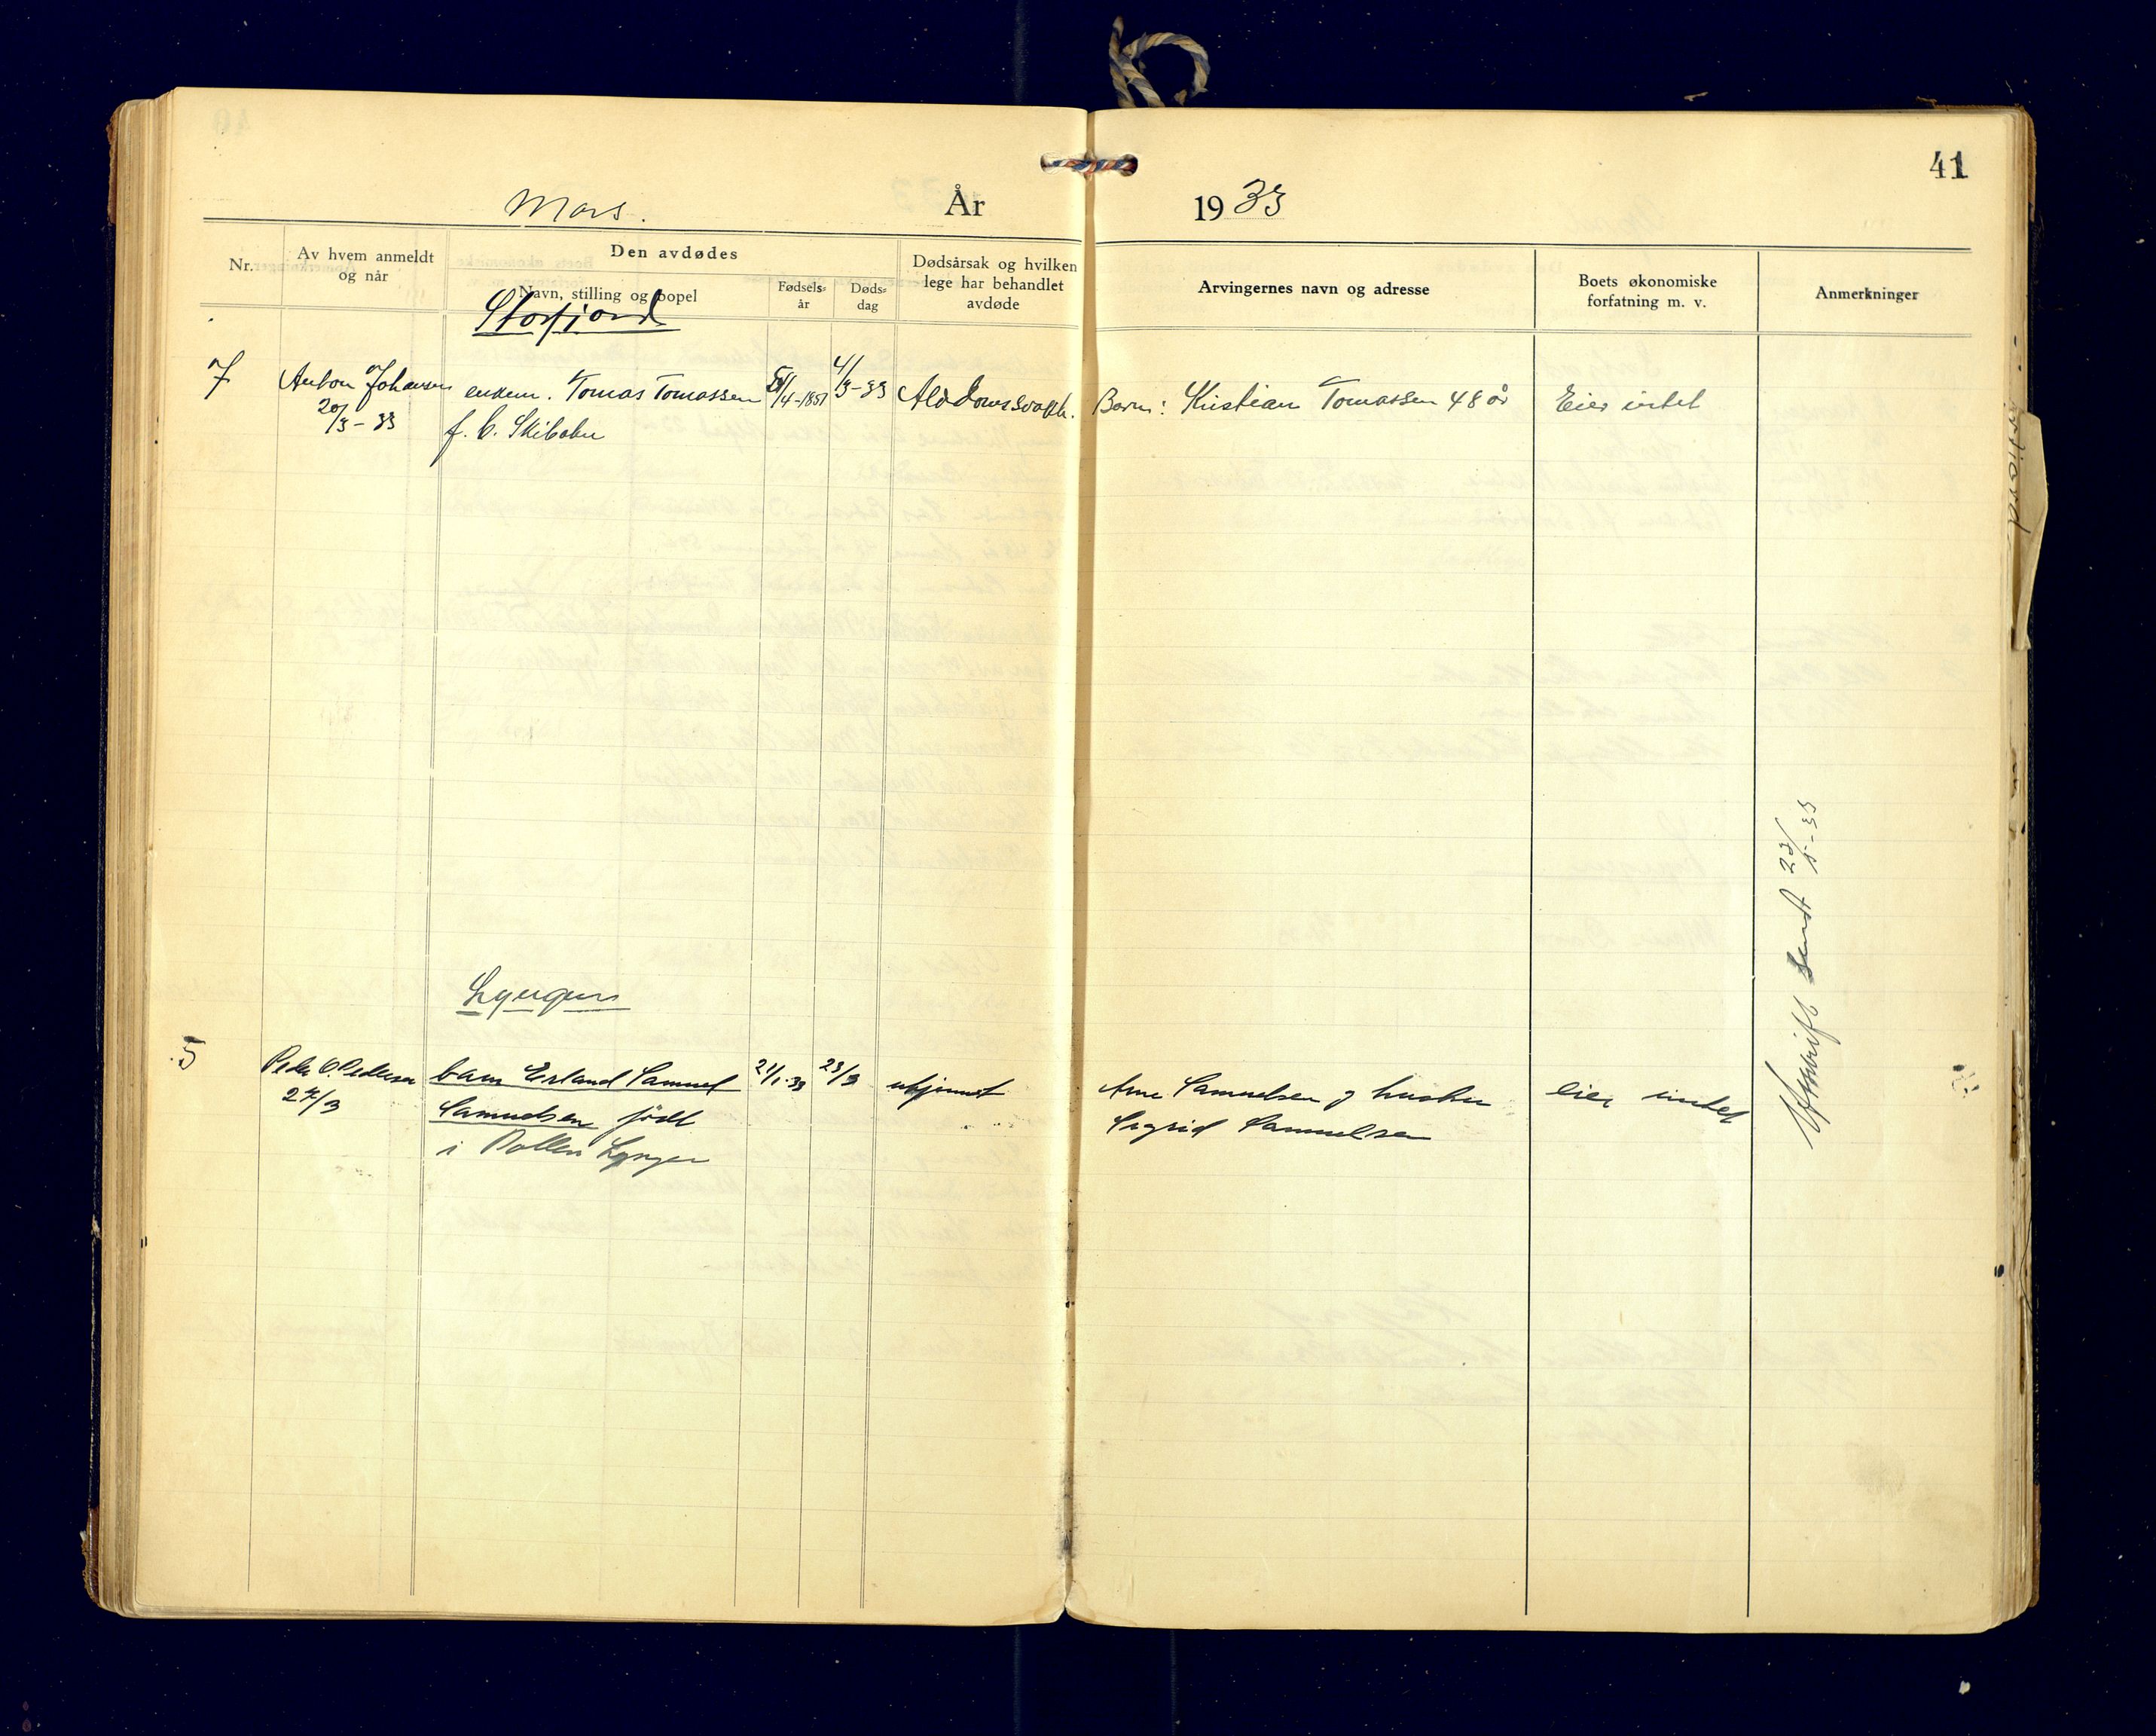 41
Mars.
År 1933
Nr.
Av hvem anmeldt
og når
Den avdødes
Navn, stilling og bopel
Fødsels-
år
Døds-
dag
Dødsårsak og hvilken
lege har behandlet
avdøde
Arvingernes navn og adresse
Boets økonomiske
forfatning m. v.
Anmerkninger
Storfjord
7 Anton Johansen enkem. Tomas Tomassen /4-1851 4/3-33 Barn: Kristian Tomassen 48 år Eier intet
20/3-33 f. b. Skibotn
Lyngen
5 Peder O. Pedersen barn Erland Samuel 21/1-33 23/3 ukjennt Arne Samuelsen og hustru eier intet
24/3 Samuelsen født Sigrid Samuelsen
i Pollen Lyngen
Avskrift sendt 23/5-33